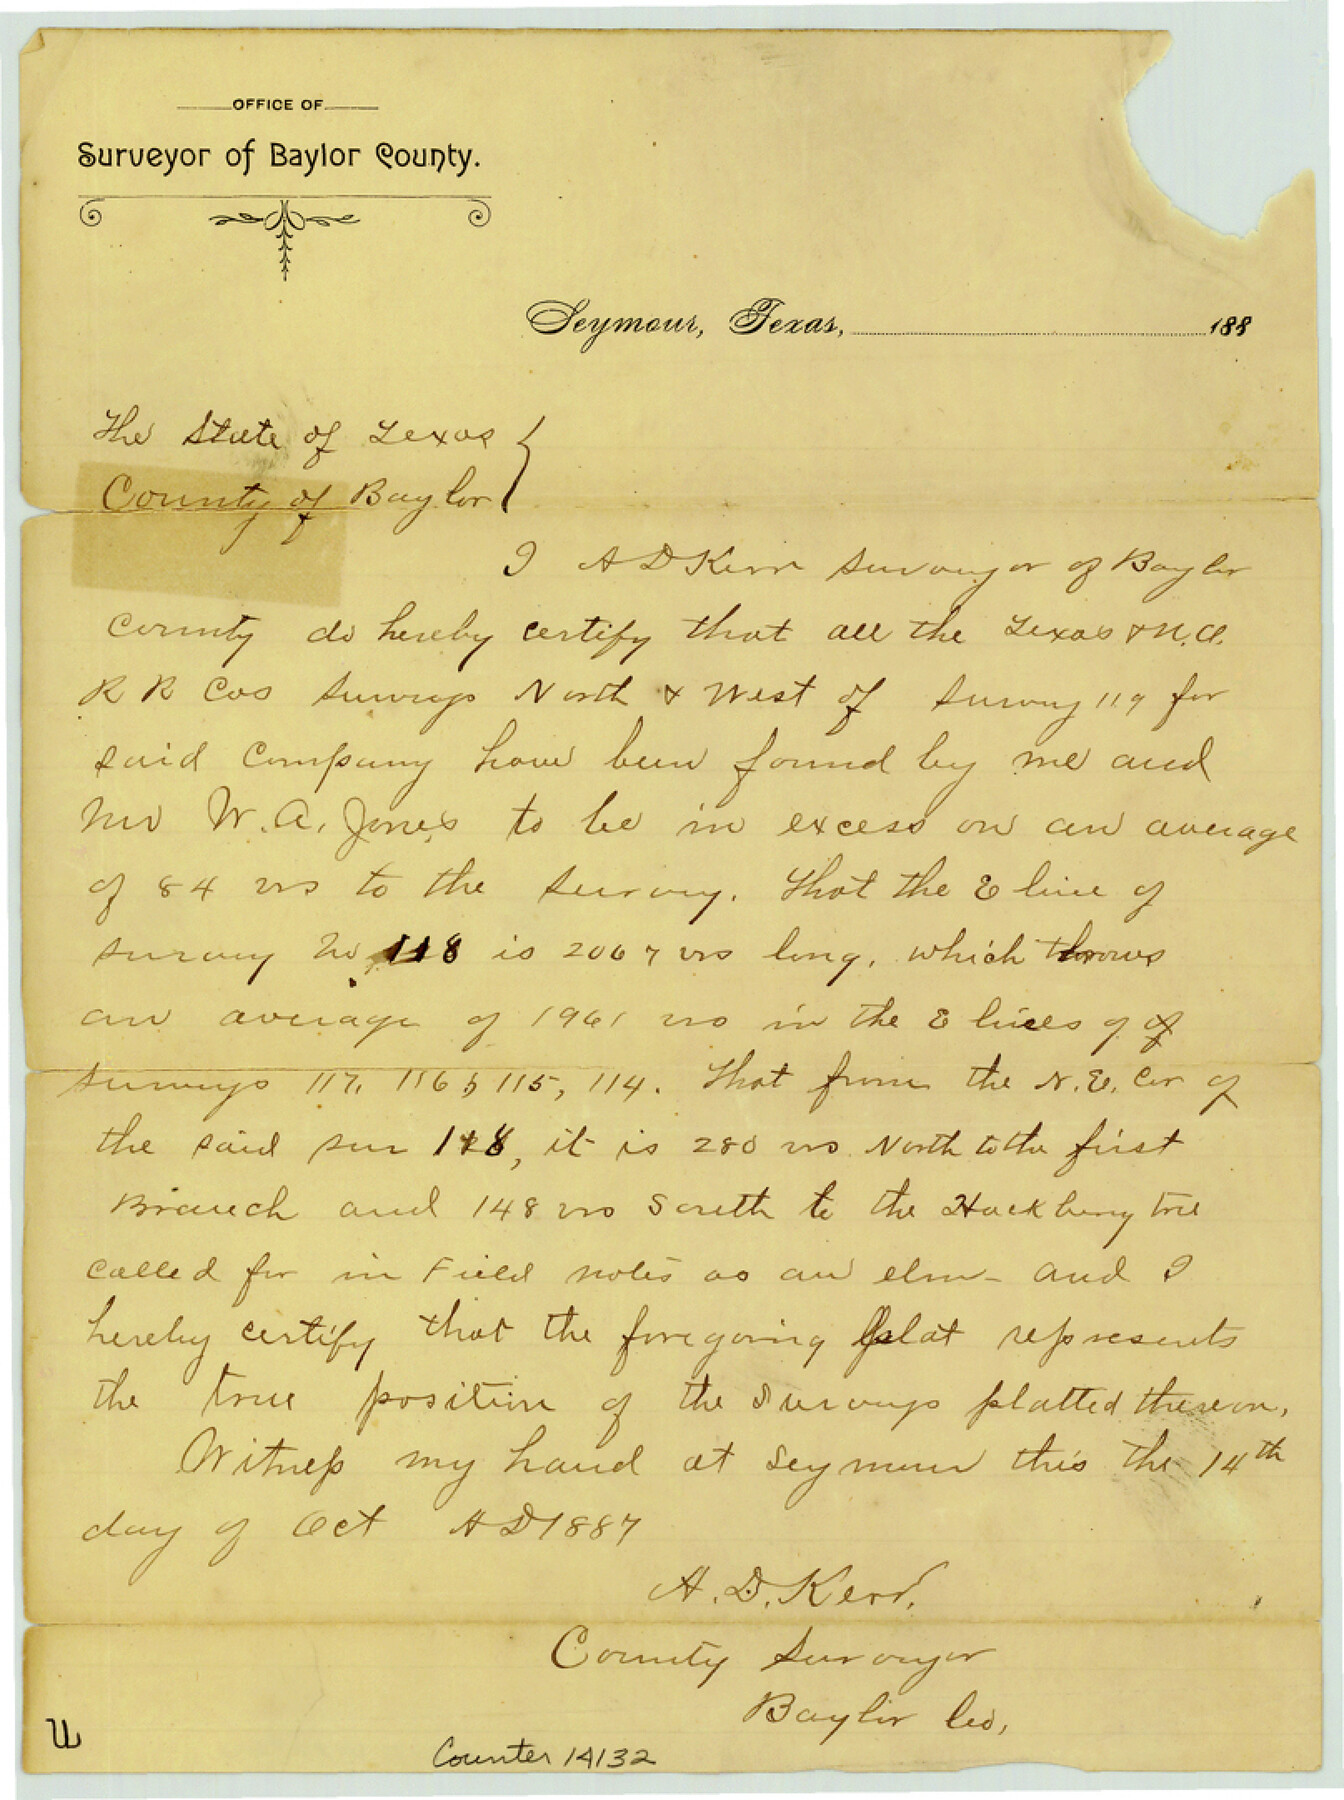 OFFICE OF
Surveyor of Baylor County.
Seymour, Texas, 188
The State of Texas
County of Baylor
I A D Kerr Surveyor of Baylor
County do hereby certify that all the Texas & N.O.
R R Cos Surveys North & West of Survey 119 for
said Company have been found by me and
Mr W. A. Jones to be in excess on an average
of 84 vrs to the Survey. That the E line of
survey No 118 is 2067 vrs long, which throws
an average of 1961 vrs in the E lines of of
surveys 117, 116, 115, 114. That from the N.E. Cor of
the said sur 118, it is 280 vrs North to the first
Branch and 148 vrs South to the Hackberry tree
called for in Field notes as an elm - and I
hereby certify that the foregoing plat represents
the true position of the Surveys platted thereon,
Witness my hand at Seymour this the 14th
day of Oct A D 1887
A. D. Kerr,
County Surveyor
Baylor Co,
Counter 14132